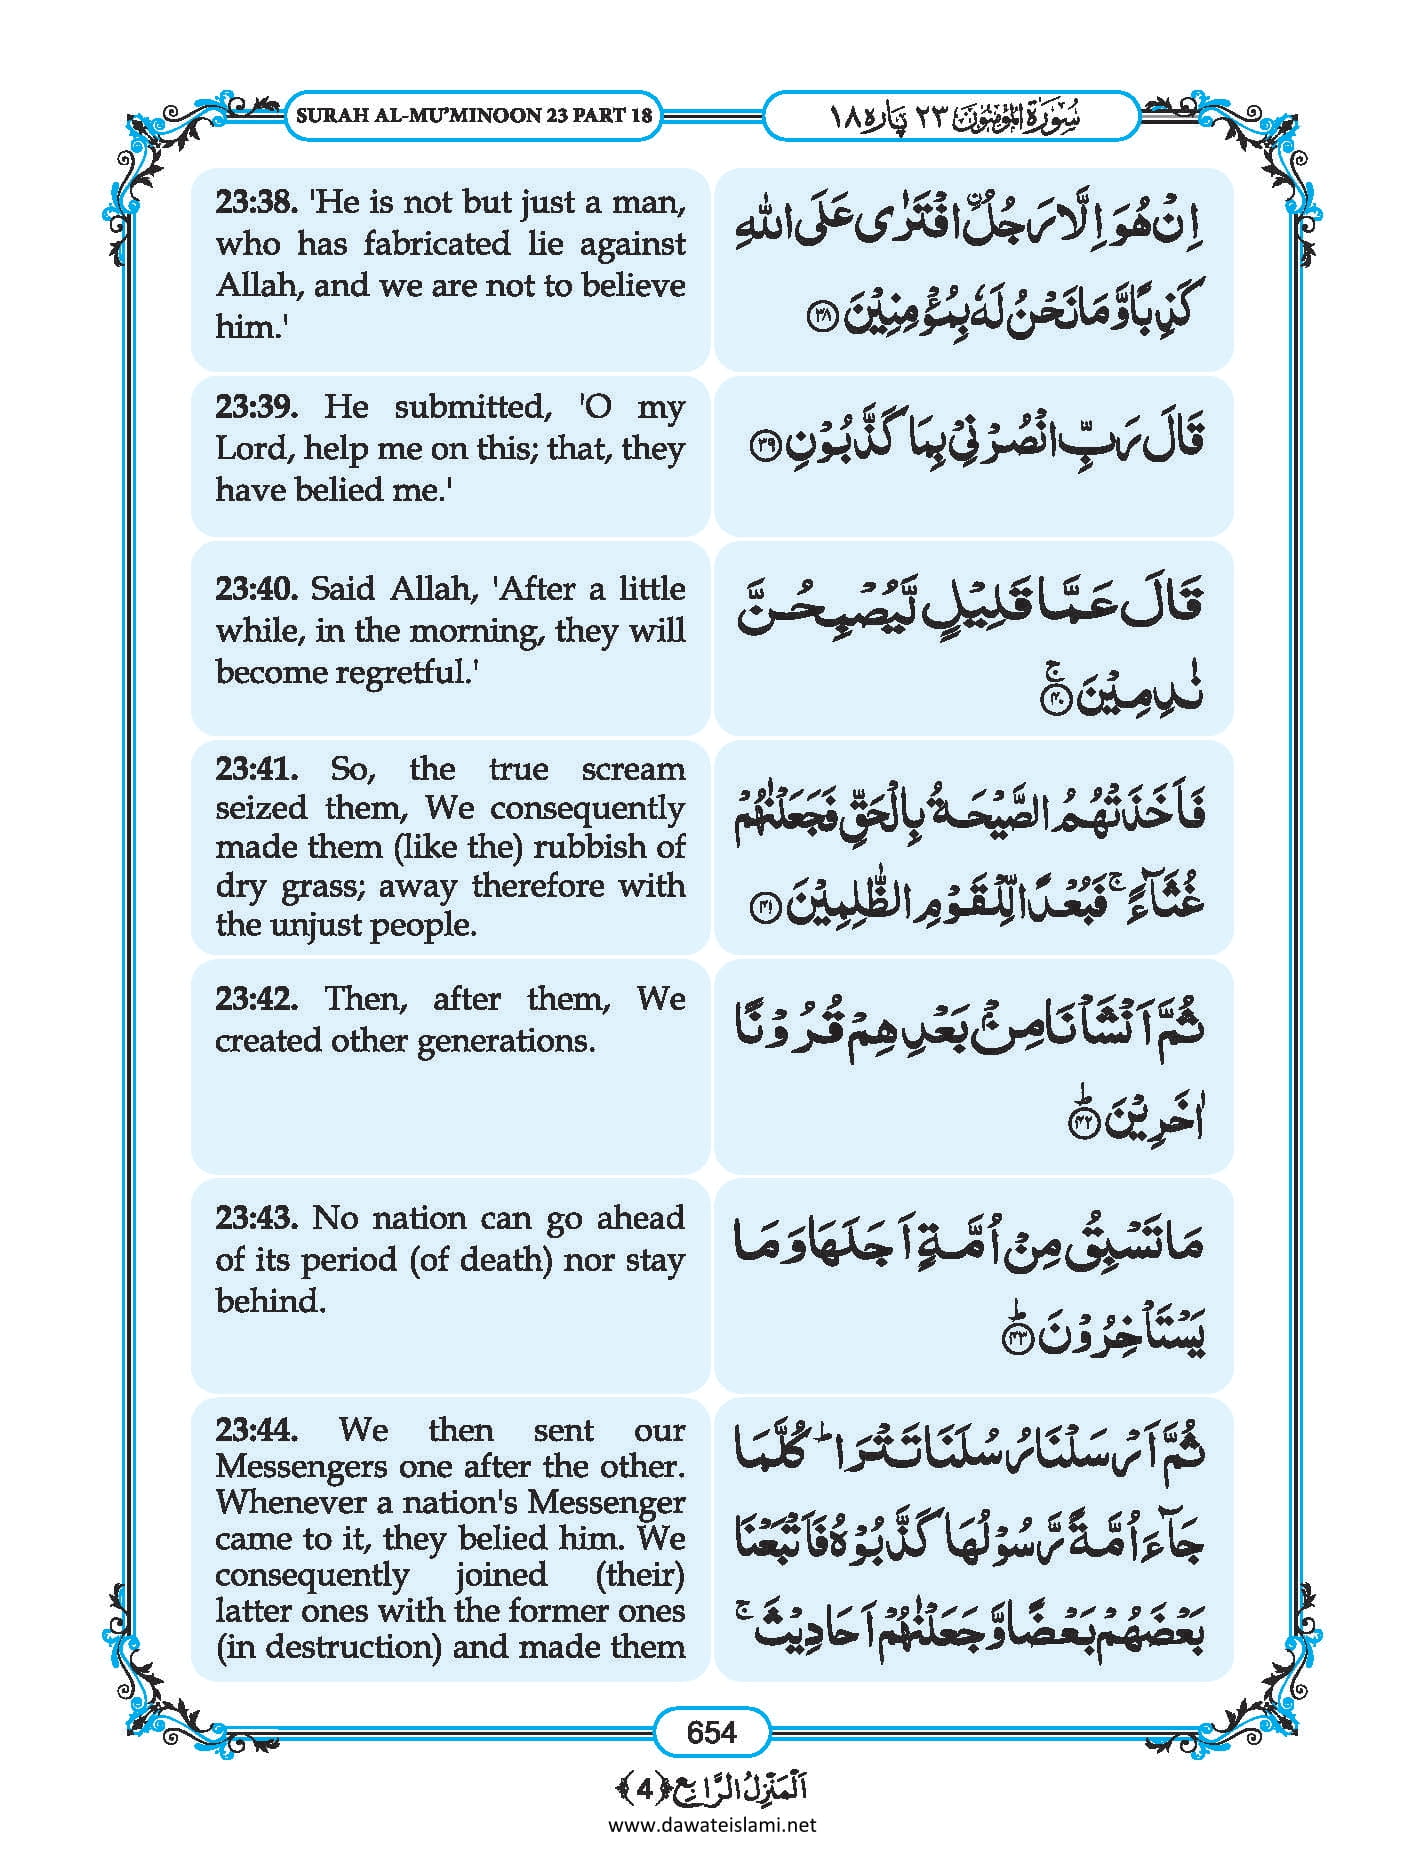 SURAH AL-MU'MINOON 23 PART 18
سُوْرَةُ الْمُؤْمِنُوْنَ ٢٣ پَارہ ١٨
23:38. 'He is not but just a man,
who has fabricated lie against
Allah, and we are not to believe
him.'
اِنْ هُوَ اِلَّا رَجُلُ ۨافْتَرٰى عَلَى اللّٰهِ
كَذِبًا وَّمَا نَحْنُ لَهٗ بِمُؤْمِنِيْنَ ﴿۳۸﴾
23:39. He submitted, 'O my
Lord, help me on this; that, they
have belied me.'
قَالَ رَبِّ انْصُرْنِيْ بِمَا كَذَّبُوْنِ ﴿۳۹﴾
23:40. Said Allah, 'After a little
while, in the morning, they will
become regretful.'
قَالَ عَمَّا قَلِيْلٍ لَّيُصْبِحُنَّ
نٰدِمِيْنَ ﴿۴۰﴾ۚ
23:41. So, the true scream
seized them, We consequently
made them (like the) rubbish of
dry grass; away therefore with
the unjust people.
فَاَخَذَتْهُمُ الصَّيْحَةُ بِالْحَقِّ فَجَعَلْنٰهُمْ
غُثَآءً ۚ فَبُعْدًا لِّلْقَوْمِ الظّٰلِمِيْنَ ﴿۴۱﴾
23:42. Then, after them, We
created other generations.
ثُمَّ اَنْشَاْنَا مِنْۢ بَعْدِهِمْ قُرُوْنًا
اٰخَرِيْنَ ﴿۴۲﴾ؕ
23:43. No nation can go ahead
of its period (of death) nor stay
behind.
مَا تَسْبِقُ مِنْ اُمَّةٍ اَجَلَهَا وَمَا
يَسْتَاْخِرُوْنَ ﴿۴۳﴾ؕ
23:44. We then sent our
Messengers one after the other.
Whenever a nation's Messenger
came to it, they belied him. We
consequently joined (their)
latter ones with the former ones
(in destruction) and made them
ثُمَّ اَرْسَلْنَا رُسُلَنَا تَتْرَا ؕ كُلَّمَا
جَآءَ اُمَّةً رَّسُوْلُهَا كَذَّبُوْهُ فَاَتْبَعْنَا
بَعْضَهُمْ بَعْضًا وَّجَعَلْنٰهُمْ اَحَادِيْثَ ۚ
654
اَلْمَنْزِلُ الرَّابِع ﴿4﴾
www.dawateislami.net